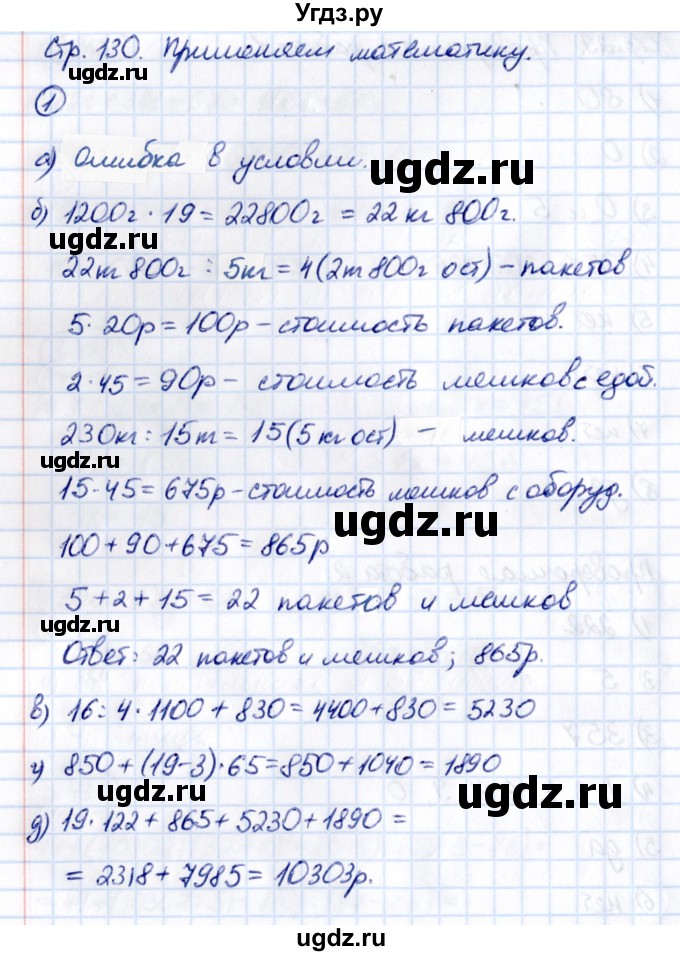 Угдз.ру
Стр. 130. Применяем математику.
ugdz.ru
1
ugdz.ru
а) Ошибка в условии.
ugdz.ru
б) 1200г · 19 = 22800г = 22кг 800г.
ugdz.ru
22т 800г : 5кг = 4(2т 800г ост) – пакетов
5 · 20р = 100р – стоимость пакетов.
2 · 45 = 90р – стоимость мешков с едоб.
230кг : 15т = 15(5кг ост) – мешков.
ugdz.ru
15 · 45 = 675р – стоимость мешков с оборуд.
ugdz.ru
100 + 90 + 675 = 865р
5 + 2 + 15 = 22 пакетов и мешков
ugdz.ru
Ответ: 22 пакетов и мешков; 865р.
в) 16 : 4 · 1100 + 830 = 4400 + 830 = 5230
г) 850 + (19 – 3) · 65 = 850 + 1040 = 1890
ugdz.ru
ugdz.ru
д) 19 · 122 + 865 + 5230 + 1890 =
= 2318 + 7985 = 10303р.
ugdz.ru